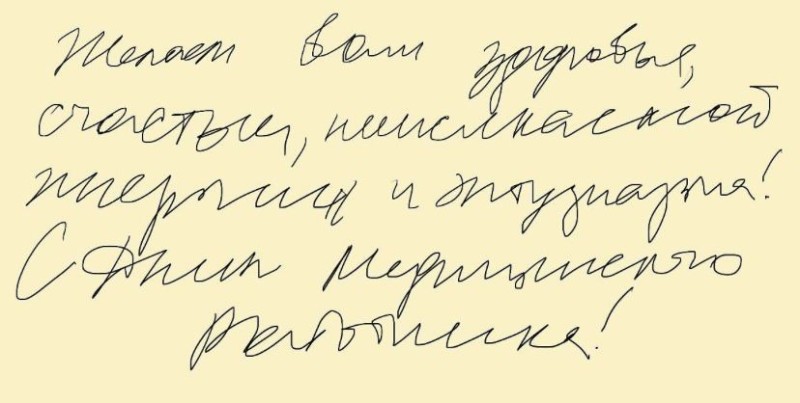 Желаем Вам здоровья,
счастья, неиссякаемой
энергии и энтузиазма!
С Днем Медицинского
работника!